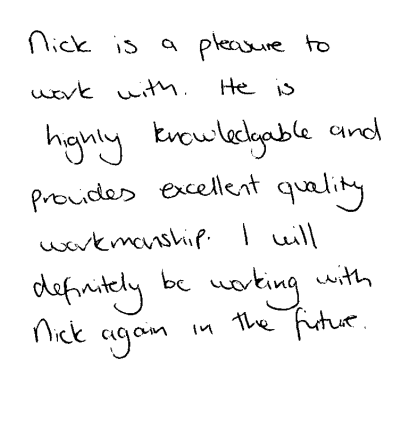 Nick is a pleasure to
work with. He is
highly knowledgable and
provides excellent quality
workmanship. I will
definitely be working with
Nick again in the future.